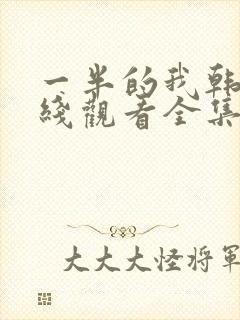 一半的我韩
綫觀看全集
大大大怪将軍